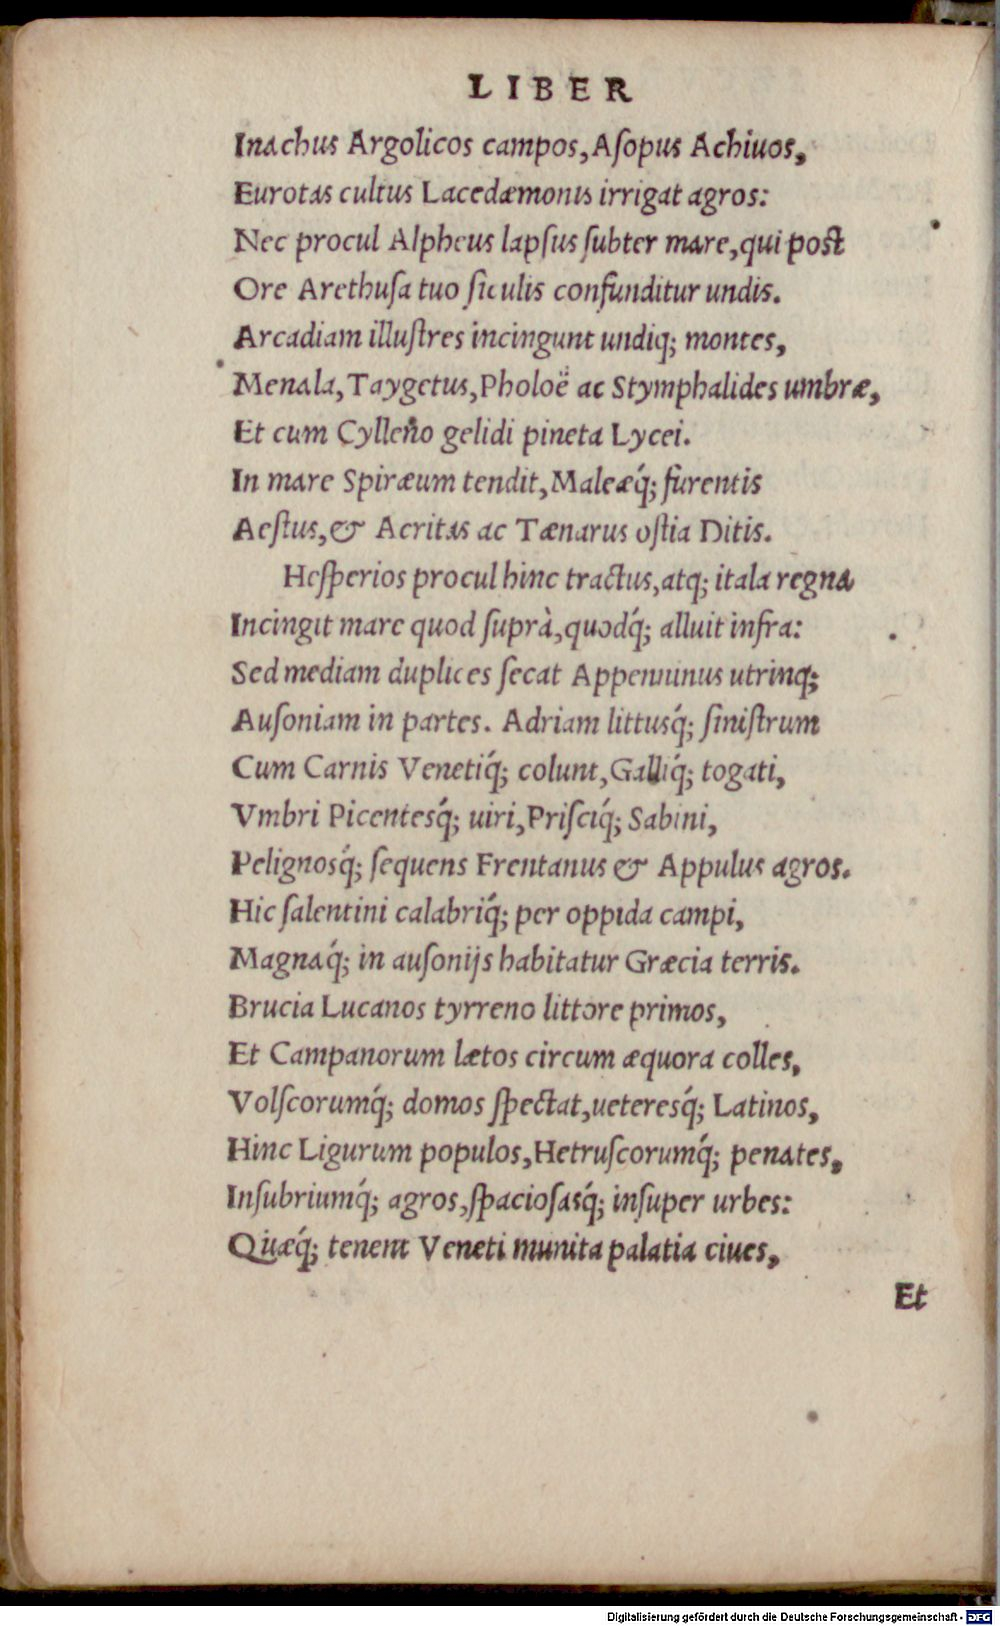 LIBER
Inachus Argolicos campos, Aſopus Achiuos,
Eurotas cultus Lacedæmonis irrigat agros:
Nec procul Alpheus lapſus ſubter mare, qui poſt
Ore Arethuſa tuo ſiculis confunditur undis.
Arcadiam illuſtres incingunt undiq; montes,
Menala, Taygetus, Pholoë ac Stymphalides umbræ,
Et cum Cylleño gelidi pineta Lycei.
In mare Spiræum tendit, Maleæq́; furentis
Aeſtus, & Acritas ac Tænarus oſtia Ditis.
Heſperios procul hinc tractus, atq; itala regna
Incingit mare quod ſuprà, quodq́; alluit infra:
Sed mediam duplices ſecat Appenninus utrinq;
Auſoniam in partes. Adriam littusq́; ſiniſtrum
Cum Carnis Venetiq́; colunt, Galliq́; togati,
Vmbri Picentesq́; uiri, Priſciq́; Sabini,
Pelignosq́; ſequens Frentanus & Appulus agros.
Hic ſalentini calabriq́; per oppida campi,
Magnaq́; in auſonijs habitatur Græcia terris.
Brucia Lucanos tyrreno littore primos,
Et Campanorum lætos circum æquora colles,
Volſcorumq́; domos ſpectat, ueteresq́; Latinos,
Hinc Ligurum populos, Hetruſcorumq́; penates,
Inſubriumq́; agros, ſpacioſasq́; inſuper urbes:
Quæq́; tenent Veneti munita palatia ciues,
Et
Digitalisierung gefördert durch die Deutsche Forschungsgemeinschaft - DFG